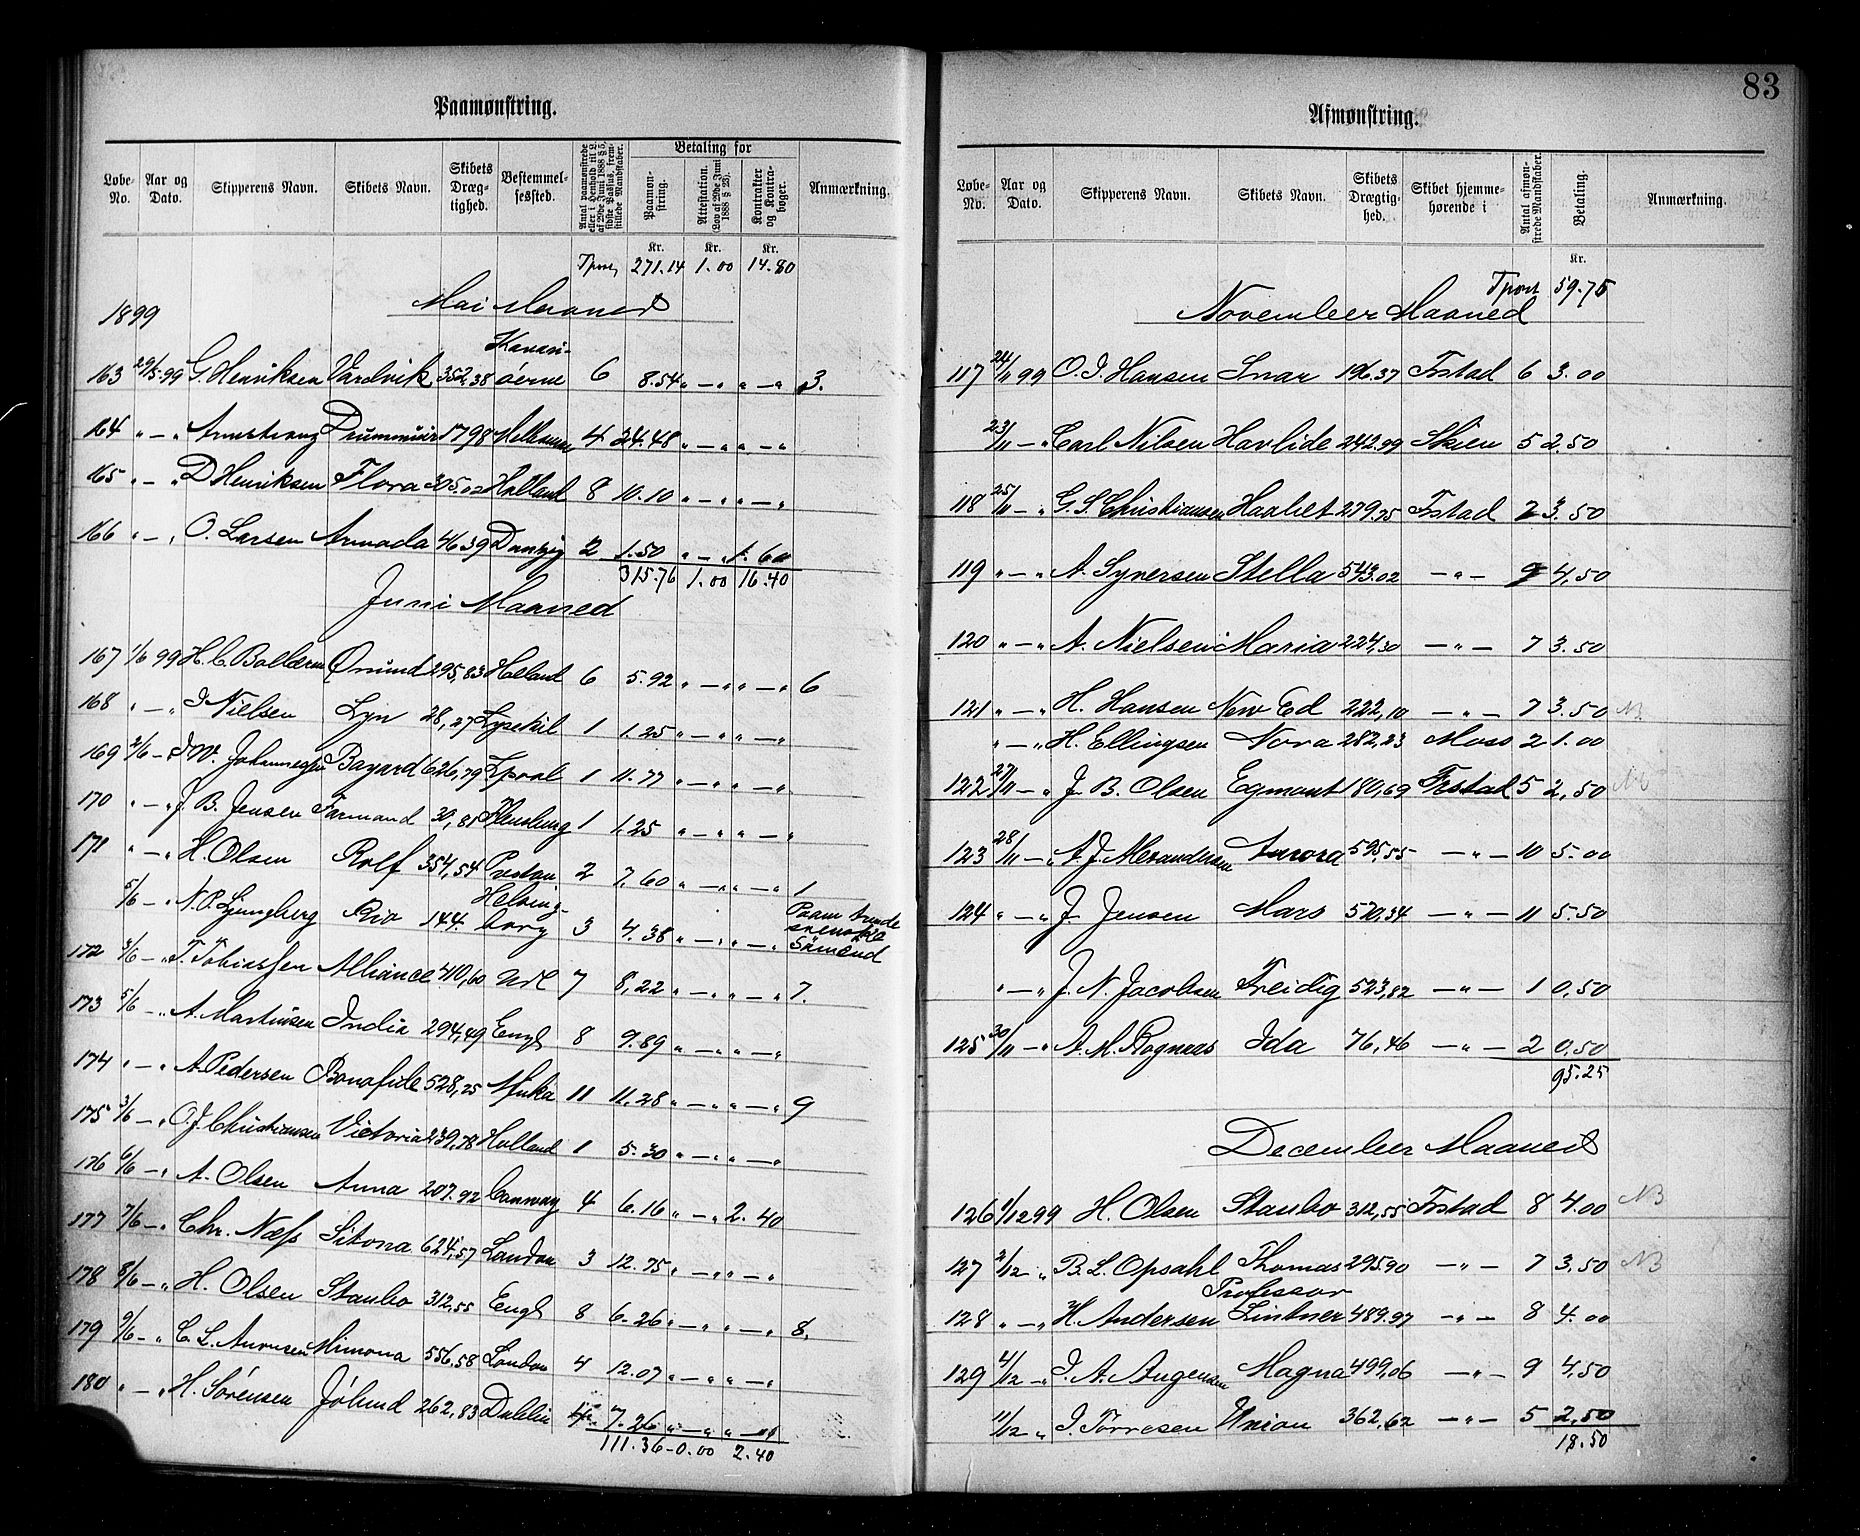 Paamønstring.
Løbe-No. Aar og Dato. Skipperens Navn. Skibets Navn. Skibets Dræg-tighed. Bestemmel-sessted. Antal paamønstrede eller i Henhold til L. af 29de Juni 1888 § 5, sidste Passus, frem-stillede Mandskaber. Betaling for Paamøn-string. Attestation. (Lov af 29de Juni 1888 § 23). Kontrakter og Kontra-bøger. Anmærkning.
Kr. Kr. Kr.
Tport, 271.14 1.00 14.80
1899 Mai Maaned
163 29/5 99 G. Henriksen Vardvik 352,38 Kanari-øerne 6 8.54 " — " " — " 3.
164 " — " Armstrong Drummuir 1798 4 24.48 " — " " — "
165 " — " D Henriksen Flora 305,02 Holland 8 10.10 " — " " — "
166 " — " O. Larsen Armada 46,39 Danzig 2 1.50 " — " 1.60
315.76 1.00 16.40
Juni Maaned
167 1/6 99 H. C. Ønund 295,83 Holland 6 5.92 " — " " — " 6
168 " — " I Nielsen Lyn 28,27 Lysekil 1 1.25 " — " " — "
169 2/6 — " Johannessen Bayard 626,79 Lpool 1 11.77 " — " " — "
170 " — " J. B. Jensen Farmand 30,81 Flensburg 1 1.25 " — " " — "
171 " — " H. Olsen Rolf 354,54 2 7,60 " — " " — " 1
5/6 — " N. P. Ljungberg Rio 144. Helsing-borg 3 4.38 " — " " — " svenske Sömænd
172 3/6 — " T. Tobiassen Alliance 410,60 7 8,22 " — " " — " 7.
173 5/6 — " A. Martinsen India 294,49 Engl 8 9.89 " — " " — "
174 " — " A Pedersen Bonafide 528,25 Afrika 11 11.28 " — " " — " 9
175 3/6 — " O. J. Christiansen Victoria 239,78 Holland 1 5.30 " — " " — "
176 6/6 — " A. Olsen Anna 207.92 Conway 4 6.16 " — " 2.40
177 7/6 — " Chr. Næss Sitona 624,57 London 3 12.75 " — " " — "
178 8/6 — " H. Olsen Staubo 312,55 Engl 8 6.26 " — " " — " 8.
179 9/6 — " C. L. Mimona 556,58 London 4 12.07 " — " " — "
180 " — " H. Sörensen Jölund 262,83 Dublin 7.26 " — " " — "
111.36 - 0.00 2.40
83
Afmønstring.
Løbe-No. Aar og Dato. Skipperens Navn. Skibets Navn. Skibets Drægtig-hed. Skibet hjemme-hørende i Antal afmøn-strede Mandskaber. Betaling. Anmærkning.
Kr.
Tport 59.75
November Maaned
117 24/11 99 O. I. Hansen Snar 196.37 Fstad 6 3.00
23/11 — " Carl Nilsen Havlide 242.99 Skien 5 2.50
118 25/11 — " G. S. Christiansen Haabet 279.75 Fstad 7 3.50
119 " — " A. Syversen Stella 543.02 — " — 9 4,50
120 " — " A. Nielsen Maria 224,30 — " — 7 3.50
121 " — " H. Hansen New Ed 222,10 — " — 7 3.50 NB
" — " H. Ellingsen Nora 282,23 Moss 2 1.00
122 27/11 — " J. B. Olsen Egmont 180,69 Frstad 5 2,50 NB
123 28/11 — " A. J. Alexandersen Aurora 595,55 — " — 10 5.00
124 " — " J. Jensen Mars 570,34 — " — 11 5.50
" — " J. N. Jacobsen Freidig 523,82 — " — 1 0,50
125 30/11 — " A. M. Rognæs Ida 76,46 — " — 2 0,50
95.25
December Maaned
126 1/12 99 H. Olsen Staubo 312,55 Fstad 8 4.00 NB
127 2/12 " B. L. Opsahl Thomas 295.90 — " — 7 3,50 NB
128 " — " H. Andersen Professor Lintner 489.97 — " — 8 4.00
129 4/12 — " I. A. Augensen Magna 499,06 — " — 9 4,50
11/12 " I. Torresen Union 362,62 — " — 5 2,50
18.50